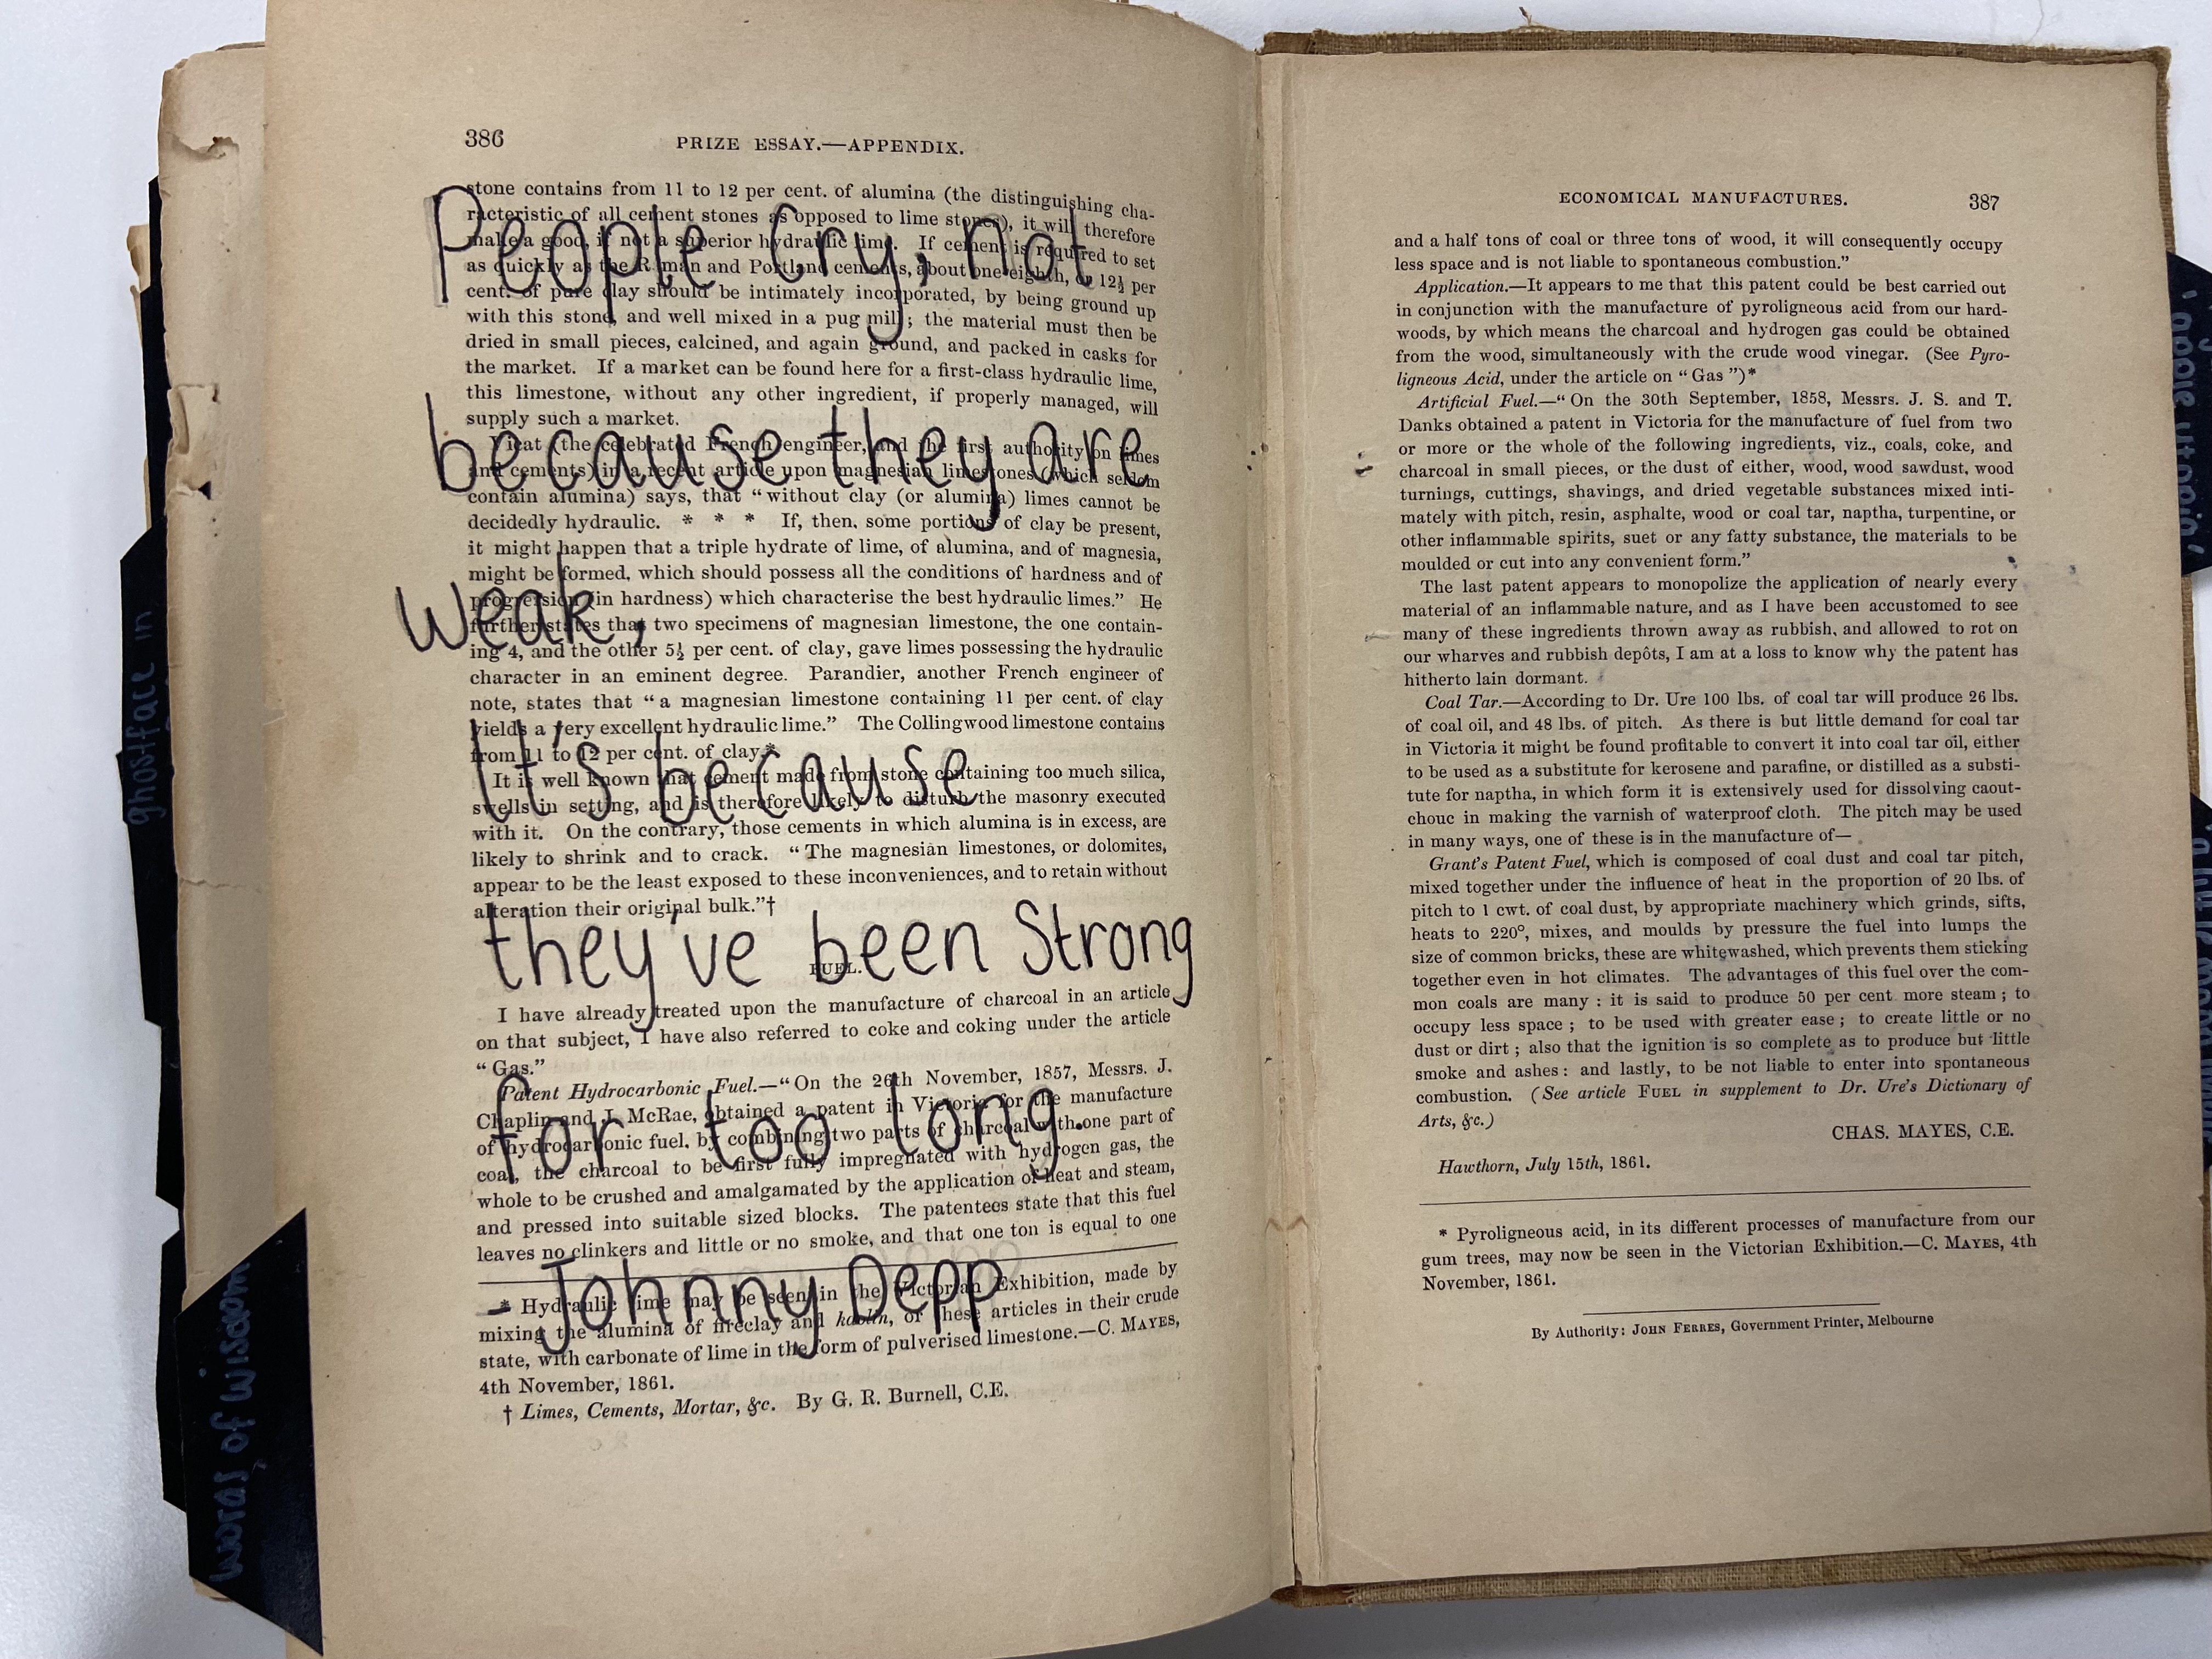 386
PRIZE ESSAY.—APPENDIX.
stone contains from 11 to 12 per cent. of alumina (the distinguishing cha-
racteristic of all cement stones as opposed to lime stones), it will therefore
make a good, if not a superior hydraulic lime. If cement is required to set
as quickly as the Roman and Portland cements, about one-eighth, or 12½ per
cent. of pure clay should be intimately incorporated, by being ground up
with this stone, and well mixed in a pug mill; the material must then be
dried in small pieces, calcined, and again ground, and packed in casks for
the market. If a market can be found here for a first-class hydraulic lime,
this limestone, without any other ingredient, if properly managed, will
supply such a market.
Vicat (the celebrated French engineer, and the first authority on limes
and cements) in a recent article upon magnesian limestones (which seldom
contain alumina) says, that “without clay (or alumina) limes cannot be
decidedly hydraulic. * * * If, then, some portions of clay be present,
it might happen that a triple hydrate of lime, of alumina, and of magnesia,
might be formed, which should possess all the conditions of hardness and of
progression (in hardness) which characterise the best hydraulic limes.” He
further states that two specimens of magnesian limestone, the one contain-
ing 4, and the other 5½ per cent. of clay, gave limes possessing the hydraulic
character in an eminent degree. Parandier, another French engineer of
note, states that “a magnesian limestone containing 11 per cent. of clay
yields a very excellent hydraulic lime.” The Collingwood limestone contains
from 11 to 12 per cent. of clay.*
It is well known that cement made from stone containing too much silica,
swells in setting, and is therefore likely to disturb the masonry executed
with it. On the contrary, those cements in which alumina is in excess, are
likely to shrink and to crack. “The magnesian limestones, or dolomites,
appear to be the least exposed to these inconveniences, and to retain without
alteration their original bulk.”†
FUEL.
I have already treated upon the manufacture of charcoal in an article
on that subject, I have also referred to coke and coking under the article
“Gas.”
Patent Hydrocarbonic Fuel.—“On the 26th November, 1857, Messrs. J.
Chaplin and J. McRae, obtained a patent in Victoria for the manufacture
of hydrocarbonic fuel, by combining two parts of charcoal with one part of
coal, the charcoal to be first fully impregnated with hydrogen gas, the
whole to be crushed and amalgamated by the application of heat and steam,
and pressed into suitable sized blocks. The patentees state that this fuel
leaves no clinkers and little or no smoke, and that one ton is equal to one
* Hydraulic lime may be seen in the Victorian Exhibition, made by
mixing the alumina of fireclay and kaolin, or these articles in their crude
state, with carbonate of lime in the form of pulverised limestone.—C. MAYES,
4th November, 1861.
† Limes, Cements, Mortar, &c. By G. R. Burnell, C.E.
People Cry, not
because they are
weak,
It's because
they've been Strong
for too long.
- Johnny Depp
ghostface in
words of wisdom
ECONOMICAL MANUFACTURES. 387
and a half tons of coal or three tons of wood, it will consequently occupy
less space and is not liable to spontaneous combustion.”
Application.—It appears to me that this patent could be best carried out
in conjunction with the manufacture of pyroligneous acid from our hard-
woods, by which means the charcoal and hydrogen gas could be obtained
from the wood, simultaneously with the crude wood vinegar. (See Pyro-
ligneous Acid, under the article on “Gas”)*
Artificial Fuel.—“On the 30th September, 1858, Messrs. J. S. and T.
Danks obtained a patent in Victoria for the manufacture of fuel from two
or more or the whole of the following ingredients, viz., coals, coke, and
charcoal in small pieces, or the dust of either, wood, wood sawdust, wood
turnings, cuttings, shavings, and dried vegetable substances mixed inti-
mately with pitch, resin, asphalte, wood or coal tar, naptha, turpentine, or
other inflammable spirits, suet or any fatty substance, the materials to be
moulded or cut into any convenient form.”
The last patent appears to monopolize the application of nearly every
material of an inflammable nature, and as I have been accustomed to see
many of these ingredients thrown away as rubbish, and allowed to rot on
our wharves and rubbish depôts, I am at a loss to know why the patent has
hitherto lain dormant.
Coal Tar.—According to Dr. Ure 100 lbs. of coal tar will produce 26 lbs.
of coal oil, and 48 lbs. of pitch. As there is but little demand for coal tar
in Victoria it might be found profitable to convert it into coal tar oil, either
to be used as a substitute for kerosene and parafine, or distilled as a substi-
tute for naptha, in which form it is extensively used for dissolving caout-
chouc in making the varnish of waterproof cloth. The pitch may be used
in many ways, one of these is in the manufacture of—
Grant's Patent Fuel, which is composed of coal dust and coal tar pitch,
mixed together under the influence of heat in the proportion of 20 lbs. of
pitch to 1 cwt. of coal dust, by appropriate machinery which grinds, sifts,
heats to 220°, mixes, and moulds by pressure the fuel into lumps the
size of common bricks, these are whitewashed, which prevents them sticking
together even in hot climates. The advantages of this fuel over the com-
mon coals are many: it is said to produce 50 per cent more steam; to
occupy less space; to be used with greater ease; to create little or no
dust or dirt; also that the ignition is so complete as to produce but little
smoke and ashes: and lastly, to be not liable to enter into spontaneous
combustion. (See article FUEL in supplement to Dr. Ure's Dictionary of
Arts, &c.)
CHAS. MAYES, C.E.
Hawthorn, July 15th, 1861.
* Pyroligneous acid, in its different processes of manufacture from our
gum trees, may now be seen in the Victorian Exhibition.—C. MAYES, 4th
November, 1861.
By Authority: JOHN FERRES, Government Printer, Melbourne